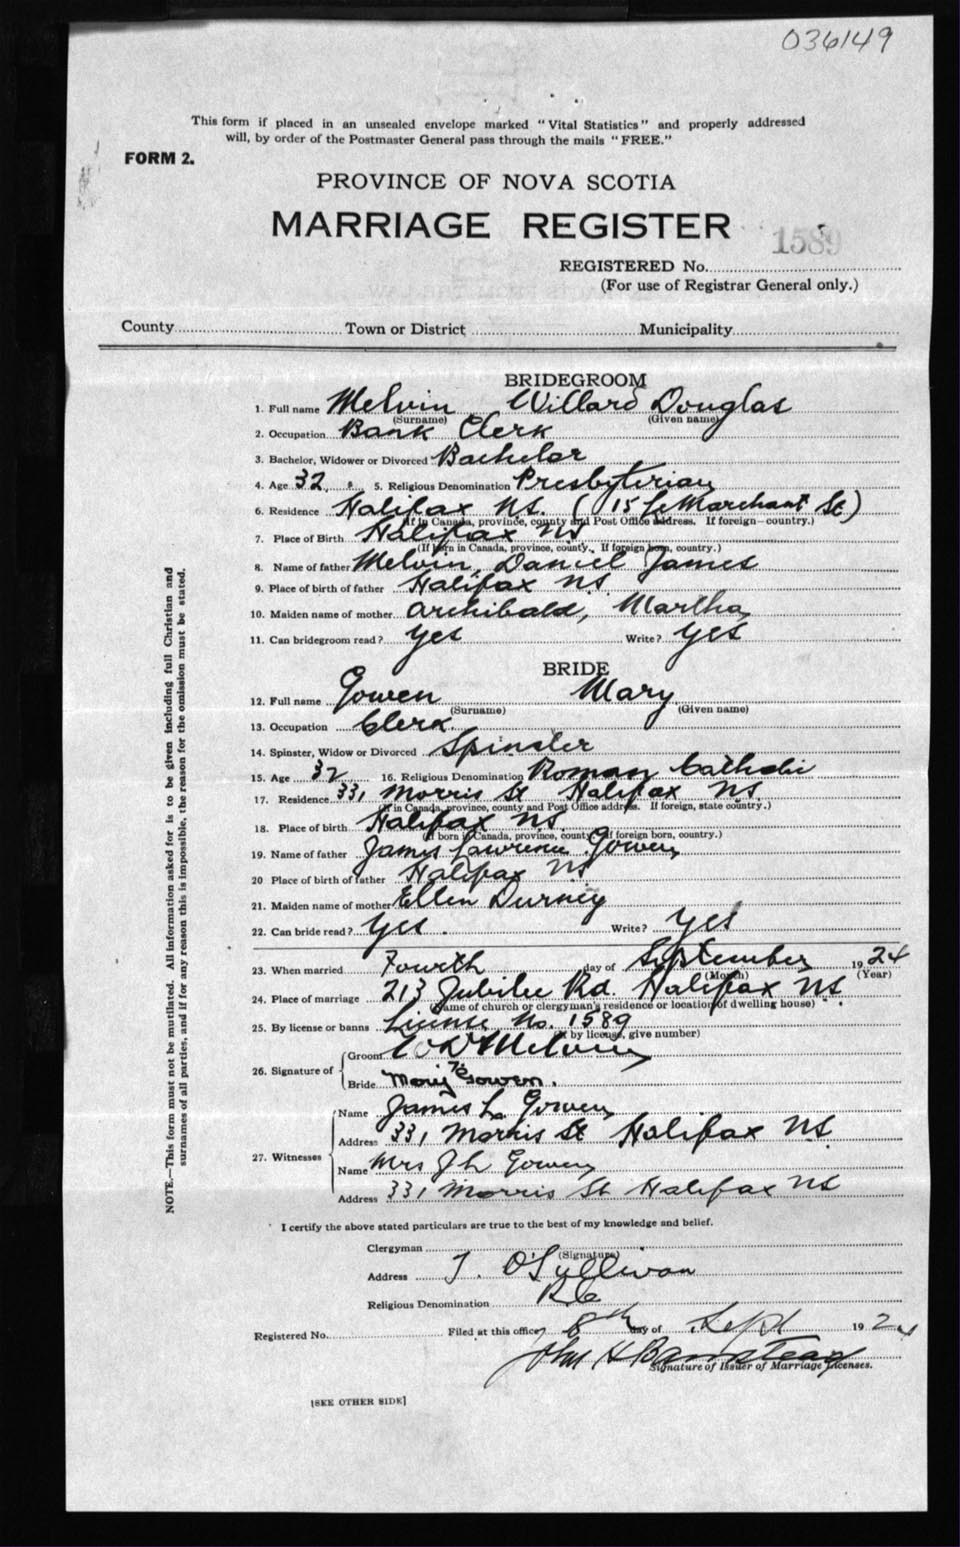 036149
This form if placed in an unsealed envelope marked "Vital Statistics" and properly addressed
will, by order of the Postmaster General pass through the mails "FREE."
FORM 2.
PROVINCE OF NOVA SCOTIA
MARRIAGE REGISTER
1589
REGISTERED No.
(For use of Registrar General only.)
County Town or District Municipality
BRIDEGROOM
1. Full name Melvin Willard Douglas
(Surname) (Given name)
2. Occupation Bank Clerk
3. Bachelor, Widower or Divorced Bachelor
4. Age 32 5. Religious Denomination Presbyterian
6. Residence Halifax N.S. (15 LeMarchant St)
(If in Canada, province, county and Post Office address. If foreign-country.)
7. Place of Birth Halifax NS
(If born in Canada, province, county. If foreign born, country.)
8. Name of father Melvin, Daniel James
9. Place of birth of father Halifax NS
10. Maiden name of mother Archibald, Martha
11. Can bridegroom read? Yes Write? Yes
BRIDE
12. Full name Gowen Mary
(Surname) (Given name)
13. Occupation Clerk
14. Spinster, Widow or Divorced Spinster
15. Age 32 16. Religious Denomination Roman Catholic
17. Residence 331 Morris St Halifax NS.
(If in Canada, province, county and Post Office address. If foreign, state country.)
18. Place of birth Halifax NS.
(If born in Canada, province, county. If foreign born, country.)
19. Name of father James Lawrence Gowen
20 Place of birth of father Halifax NS
21. Maiden name of mother Ellen Durney
22. Can bride read? Yes. Write? Yes
23. When married Fourth day of September 1924
(Month) (Year)
24. Place of marriage 213 Jubilee Rd. Halifax NS.
(Name of church or clergyman's residence or location of dwelling house)
25. By license or banns License No. 1589
(If by license, give number)
26. Signature of Groom W D Melvin
Bride Mary Gowen.
27. Witnesses Name James L. Gowen
Address 331 Morris St Halifax NS
Name Mrs J L Gowen
Address 331 Morris St Halifax NS
I certify the above stated particulars are true to the best of my knowledge and belief.
Clergyman
(Signature)
Address T. O'Sullivan
Religious Denomination RC
Registered No. Filed at this office 8th day of Sept 1924
John H Barnstead
Signature of Issuer of Marriage Licenses.
[SEE OTHER SIDE]
NOTE.—This form must not be mutilated. All information asked for is to be given including full Christian and
surnames of all parties, and if for any reason this is impossible, the reason for the omission must be stated.